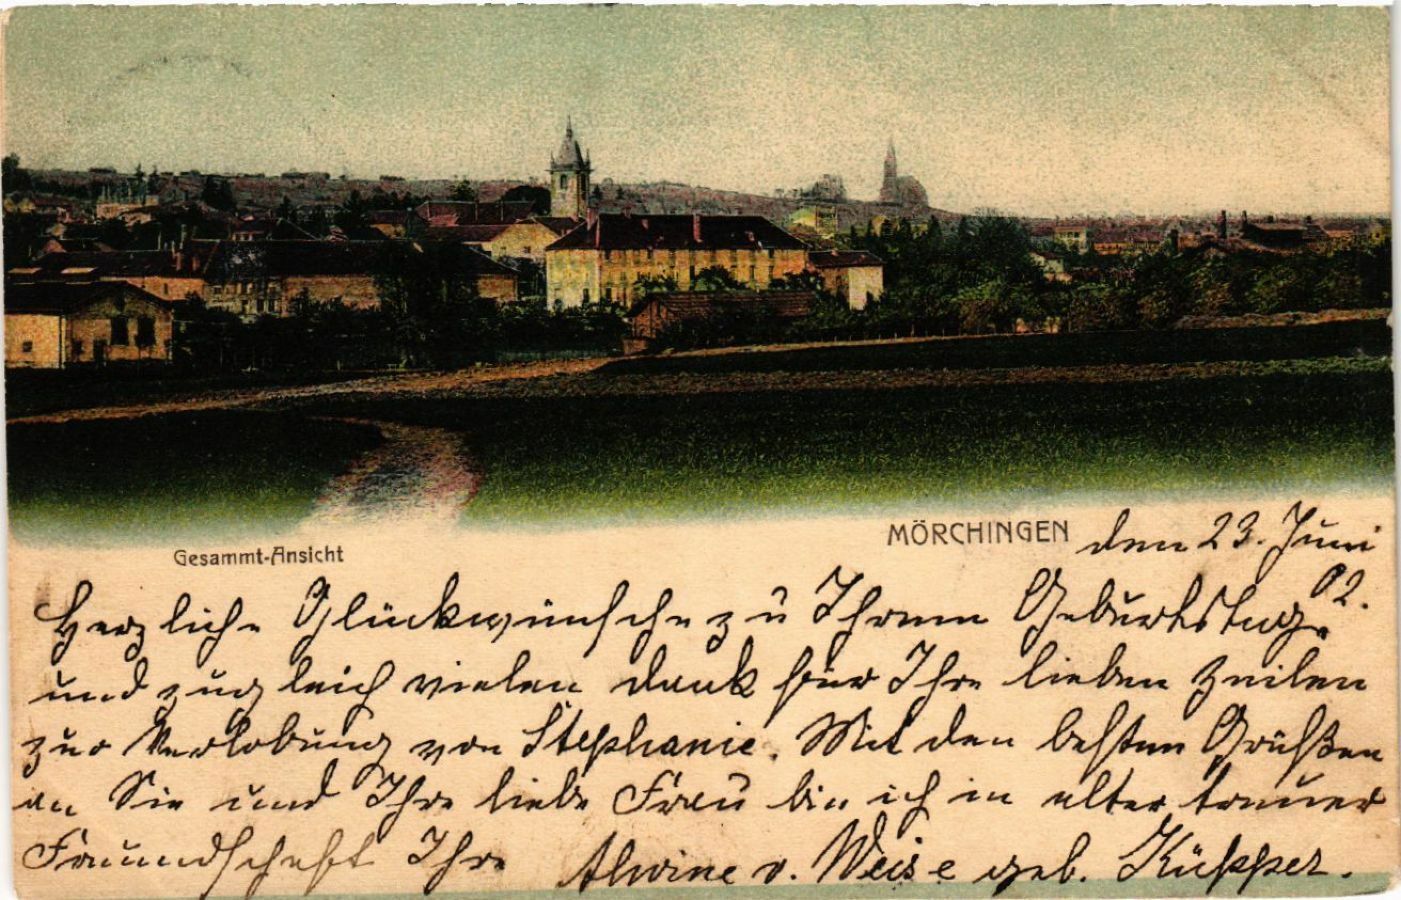 Gesammt-Ansicht
MÖRCHINGEN den 23. Juni
02.
Herzliche Glückwünsche zu Ihrem Geburtstag,
und zugleich vielen dank für Ihre lieben Zeilen
zur Verlobung von Stephanie. Mit den besten Grüßen
an Sie und Ihre liebe Frau bin ich in alter treuer
Freundschaft Ihre Alwine v. Weise geb. Küpper.